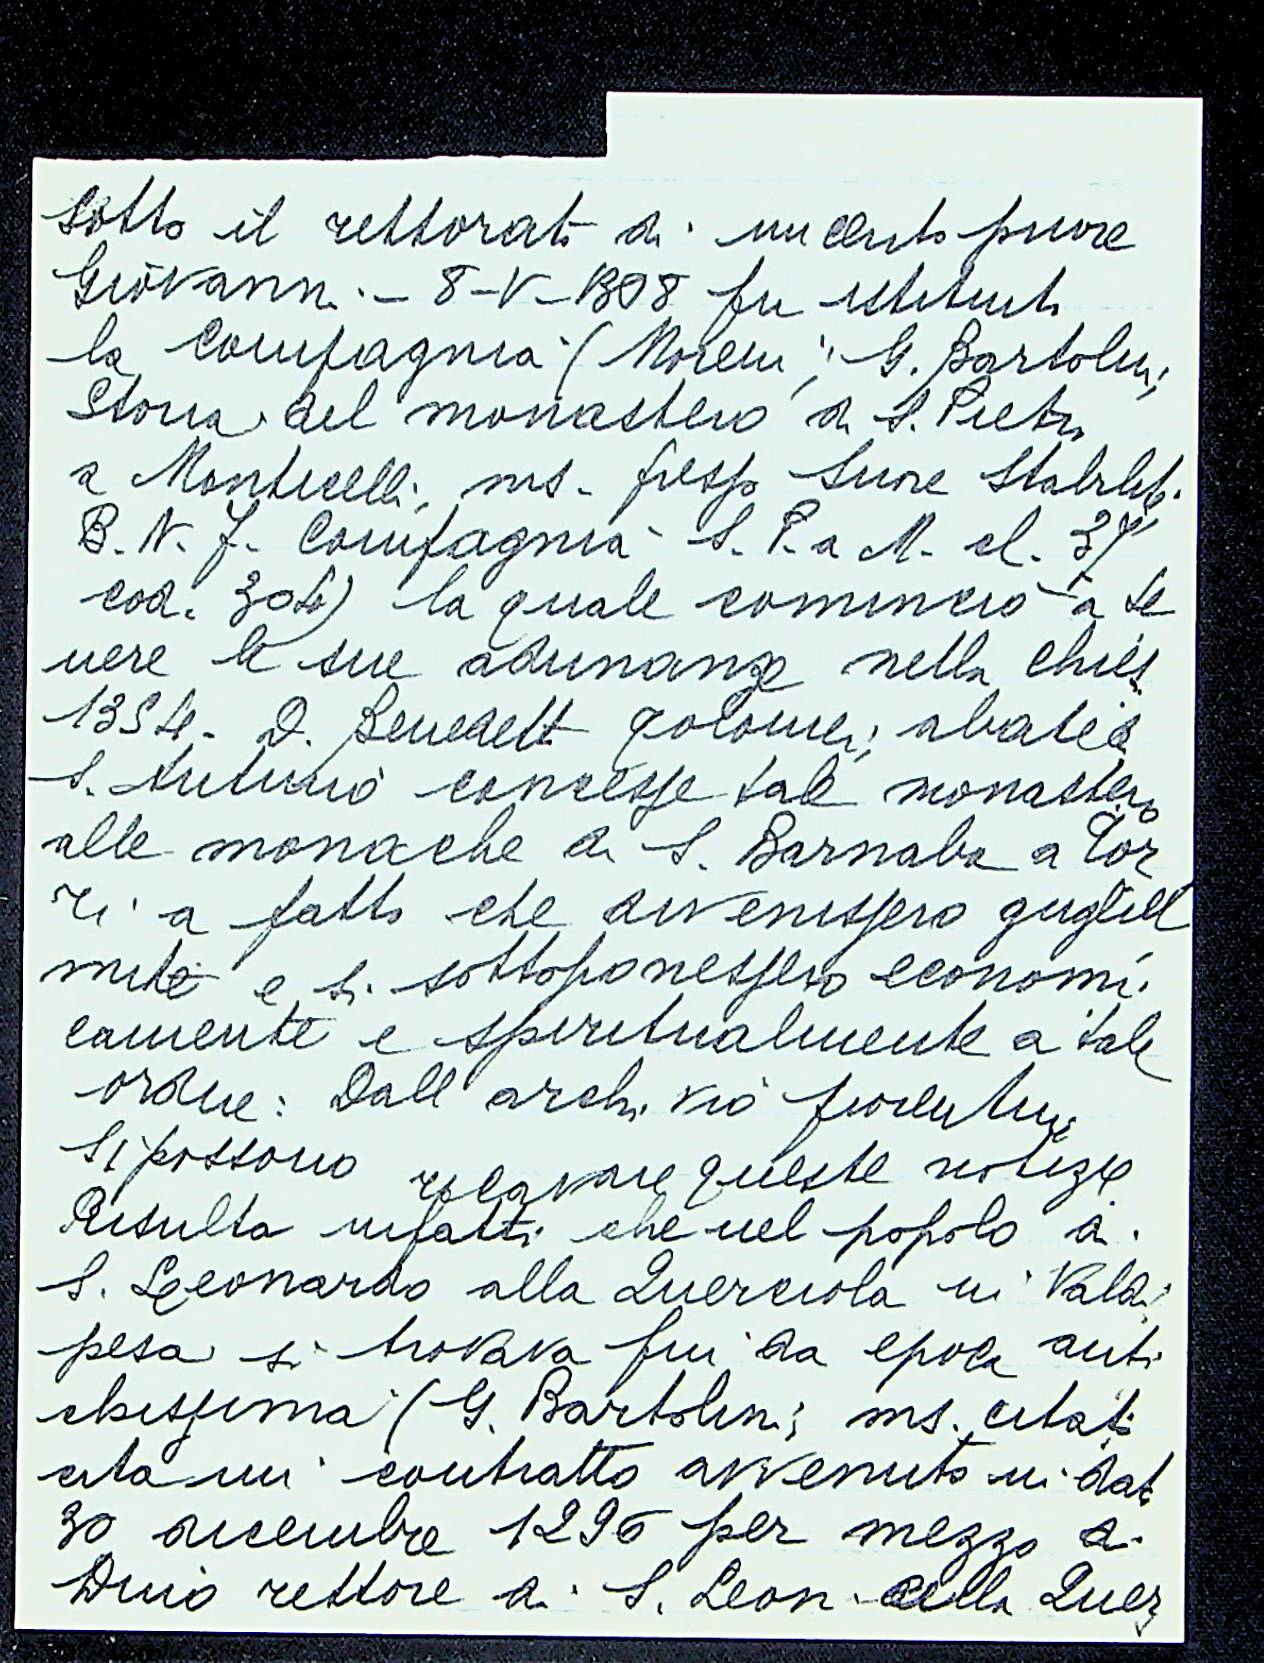 sotto il rettorato di un certo priore
Giovanni. - 8-V-1308 fu istituita
la Compagnia (Morelli, G. Bartolini,
Storia del monastero di S. Pietro
a Monticelli, ms. presso Suore Stabilite.
B. N. F. Compagnia S. P. a M. cl. 37
cod. 304) la quale cominciò a te
nere le sue adunanze nella chiesa
1354. D. Benedetto abate di
S. Antimo concesse tale monastero
alle monache di S. Barnaba a Tor
ri a fatto che divenissero gugliel
mite e si sottoponessero economi
camente e spiritualmente a tale
ordine: Dall archivio fiorentino
si possono ricavare queste notizie
Risulta infatti che nel popolo di
S. Leonardo alla Querciola in Valdi
pesa si trovava fin da epoca anti
chissima (G. Bartolini, ms. citato
cita un contratto avvenuto in data
30 dicembre 1296 per mezzo di
Dino rettore di S. Leon. della Quer